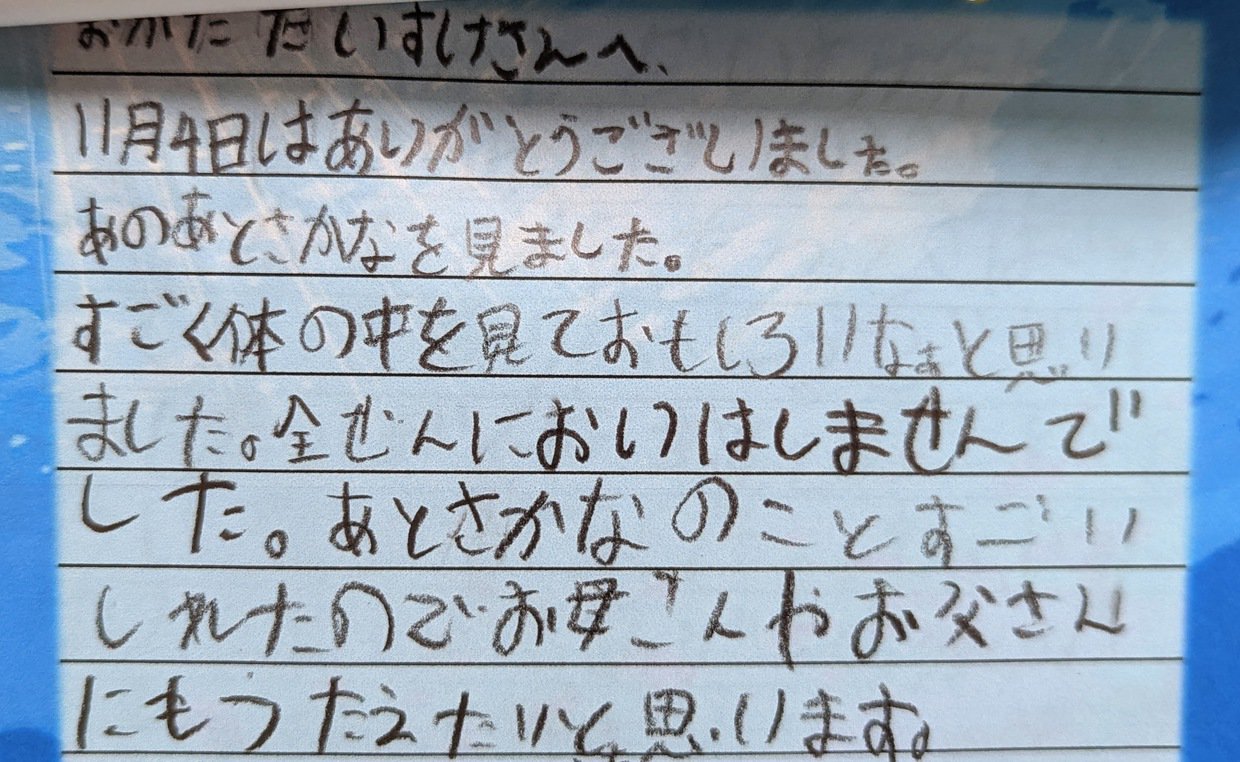 おかだ だいすけさんへ、
11月4日はありがとうございました。
あのあとさかなを見ました。
すごく体の中を見ておもしろいなぁと思い
ました。全ぜんにおいはしませんで
した。あとさかなのことすごい
しれたのでお母さんやお父さん
にもつたえたいと思います。